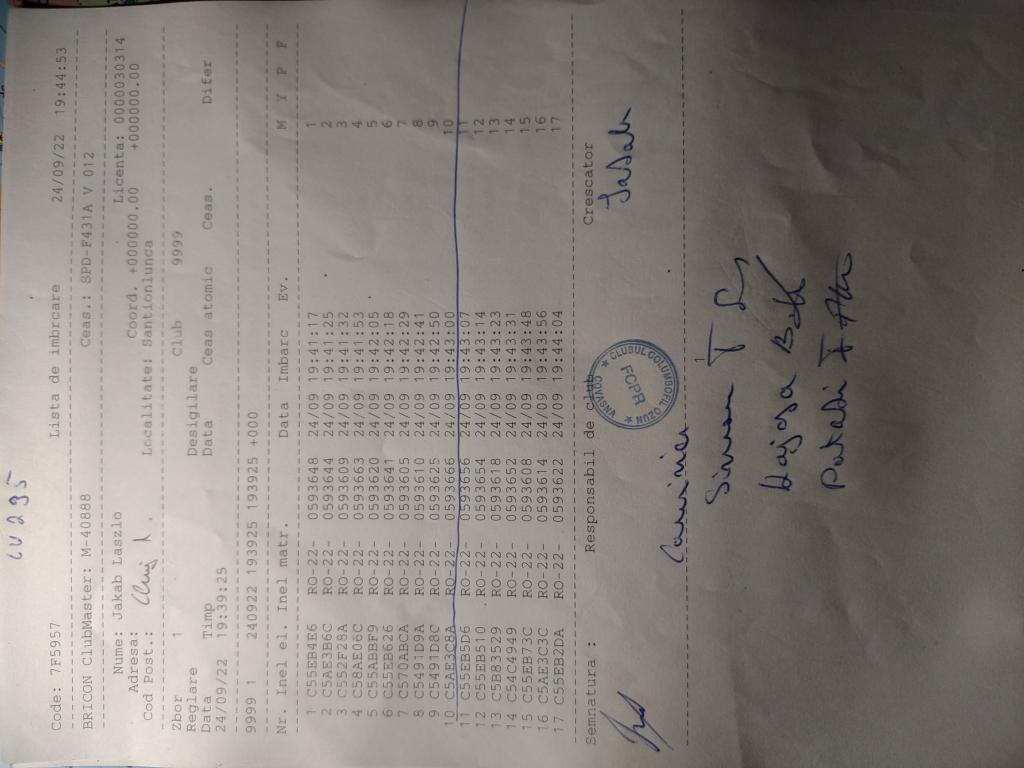 CV 295
Code: 7F5957 Lista de imbrcare 24/09/22 19:44:53
BRICON ClubMaster: M-40888 Ceas.: SPD-F431A V 012
Nume: Jakab Laszlo Licenta: 0000030314
Adresa: Coord. +000000.00 +000000.00
Cod Post.: Localitate: Santionlunca
Zbor 1 Club 9999
Reglare Desigilare
Data Timp Data Ceas atomic Ceas. Difer
24/09/22 19:39:25
9999 1 240922 193925 193925 +000
Nr. Inel el. Inel matr. Data Imbarc Ev. M Y P F
1 C55EB4E6 RO-22- 0593648 24/09 19:41:17 1
2 C5AE3B6C RO-22- 0593644 24/09 19:41:25 2
3 C552F28A RO-22- 0593609 24/09 19:41:32 3
4 C58AE06C RO-22- 0593663 24/09 19:41:53 4
5 C55ABBF9 RO-22- 0593620 24/09 19:42:05 5
6 C55EB626 RO-22- 0593641 24/09 19:42:18 6
7 C570AACA RO-22- 0593605 24/09 19:42:29 7
8 C5491D9A RO-22- 0593610 24/09 19:42:41 8
9 C549128C RO-22- 0593625 24/09 19:42:50 9
10 C5AE3C8A RO-22- 0593666 24/09 19:43:00 10
11 C55EB5D6 RO-22- 0593656 24/09 19:43:07 11
12 C55EB510 RO-22- 0593654 24/09 19:43:14 12
13 C5B83529 RO-22- 0593618 24/09 19:43:23 13
14 C54C4949 RO-22- 0593652 24/09 19:43:31 14
15 C55EB73C RO-22- 0593608 24/09 19:43:48 15
16 C5AE3C3C RO-22- 0593614 24/09 19:43:56 16
17 C55EB2DA RO-22- 0593622 24/09 19:44:04 17
Semnatura : Responsabil de club Crescator
CLUBUL COLUMBOFIL OZUN
COVASNA
FCPR
1
Simon